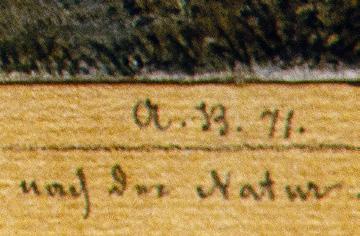 A. B. 71.
nach der Natur